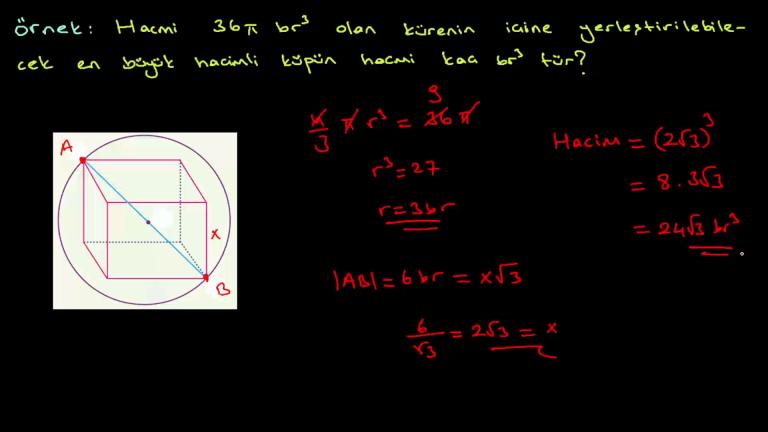 Örnek: Hacmi 36π br³ olan kürenin içine yerleştirilebile-
cek en büyük hacimli küpün hacmi kaç br³ tür?
A
x
B
4/3 π r³ = 36 π
9
r³ = 27
r = 3br
|AB| = 6 br = x√3
6/√3 = 2√3 = x
Hacim = (2√3)³
= 8.3√3
= 24√3 br³